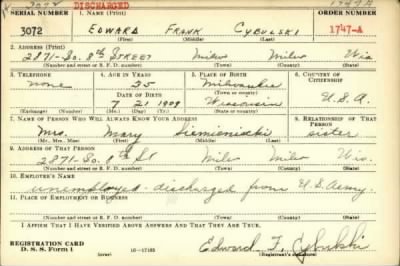 DISCHARGED
SERIAL NUMBER 1. NAME (Print) ORDER NUMBER
3072 EDWARD FRANK CYBULSKI 1747-A
(First) (Middle) (Last)
2. ADDRESS (Print)
2871-So. 8th STREET Milw Milw Wis
(Number and street or R. F. D. number) (Town) (County) (State)
3. TELEPHONE 4. AGE IN YEARS 5. PLACE OF BIRTH 6. COUNTRY OF CITIZENSHIP
none 35 Milwaukee
(Town or county)
DATE OF BIRTH
7 21 1909 Wisconsin U.S.A.
(Exchange) (Number) (Mo.) (Day) (Yr.) (State or country)
7. NAME OF PERSON WHO WILL ALWAYS KNOW YOUR ADDRESS 8. RELATIONSHIP OF THAT PERSON
Mrs. Mary sister
(Mr., Mrs., Miss) (First) (Middle) (Last)
9. ADDRESS OF THAT PERSON
2871-So. 8th St Milw Milw Wis.
(Number and street or R. F. D. number) (Town) (County) (State)
10. EMPLOYER'S NAME
unemployed - discharged from U.S. Army.
11. PLACE OF EMPLOYMENT OR BUSINESS
(Number and street or R. F. D. number) (Town) (County) (State)
I AFFIRM THAT I HAVE VERIFIED ABOVE ANSWERS AND THAT THEY ARE TRUE.
REGISTRATION CARD
D. S. S. Form 1 (over) 16-17105 Edward F. Cybulski
(Registrant's signature)